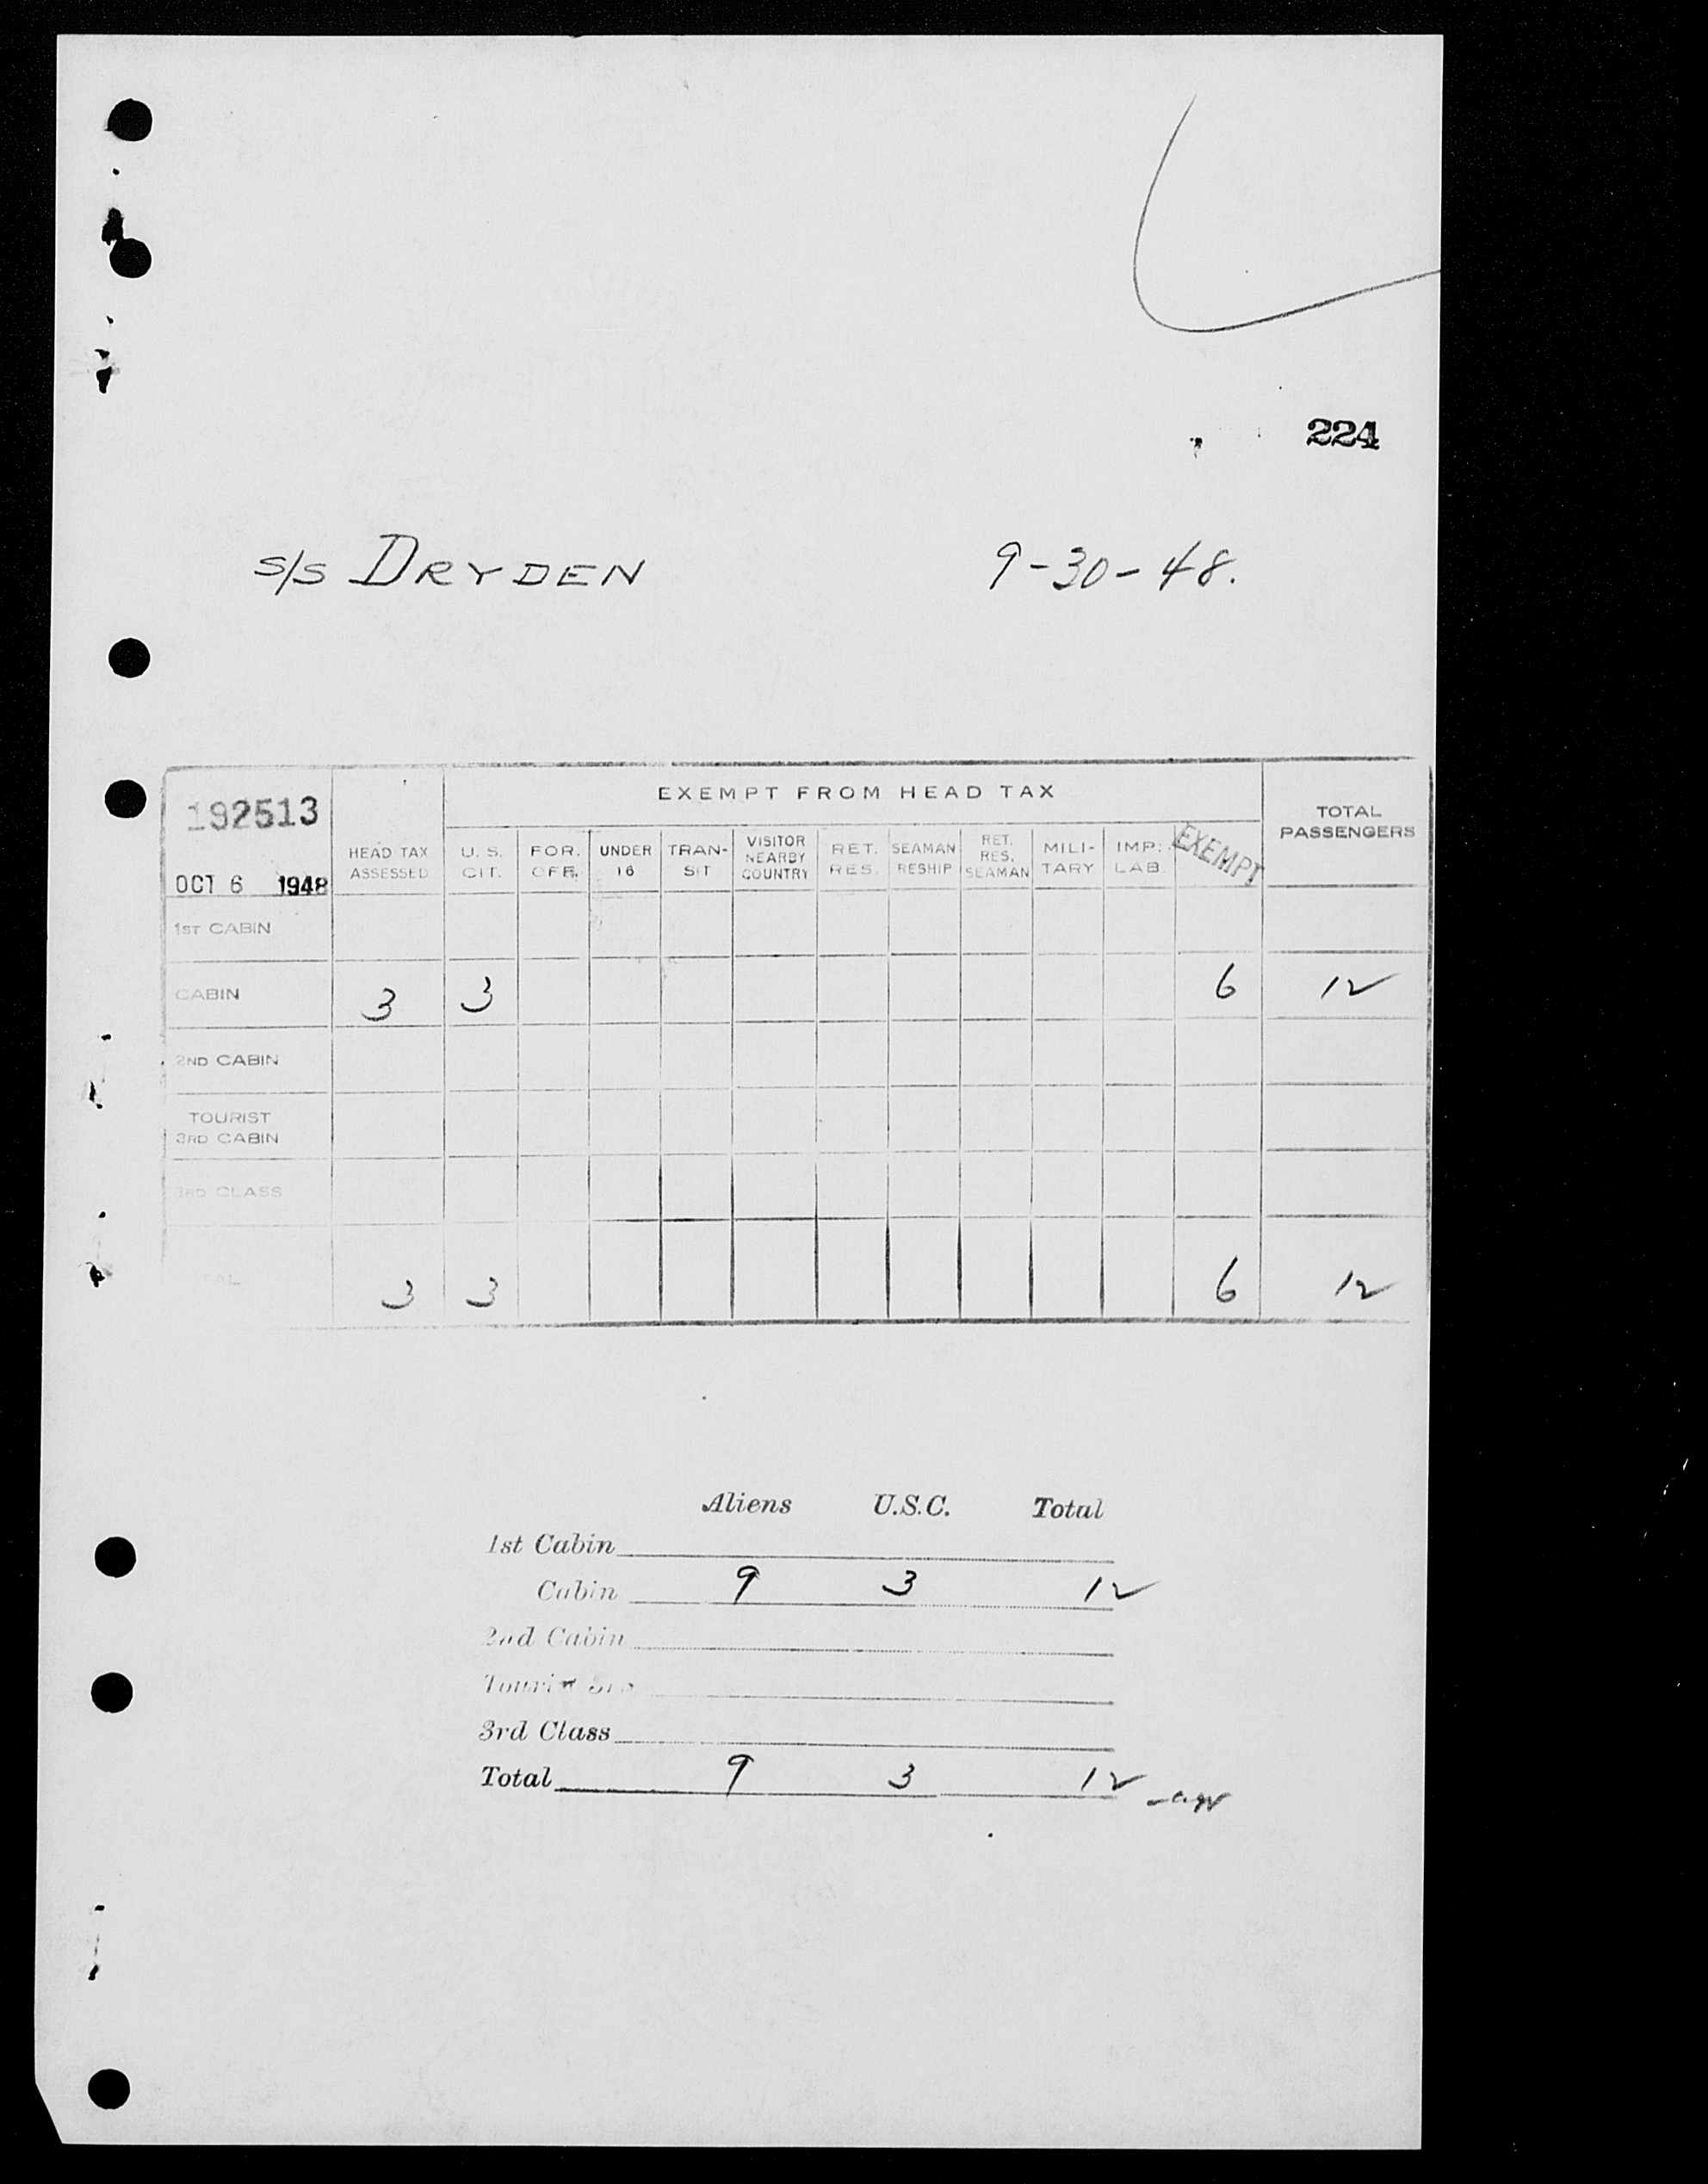 224
S/S DRYDEN 9-30-48.
192513
OCT 6 1948
HEAD TAX ASSESSED
EXEMPT FROM HEAD TAX
U. S. CIT.
FOR. OFF.
UNDER 16
TRAN- SIT
VISITOR NEARBY COUNTRY
RET. RES.
SEAMAN RESHIP
RET. RES. SEAMAN
MILI- TARY
IMP. LAB.
EXEMPT
TOTAL PASSENGERS
1ST CABIN
CABIN 3 3 6 12
2ND CABIN
TOURIST
3RD CABIN
3RD CLASS
3 3 6 12
Aliens U.S.C. Total
1st Cabin
Cabin 9 3 12
2nd Cabin
3rd Class
Total 9 3 12